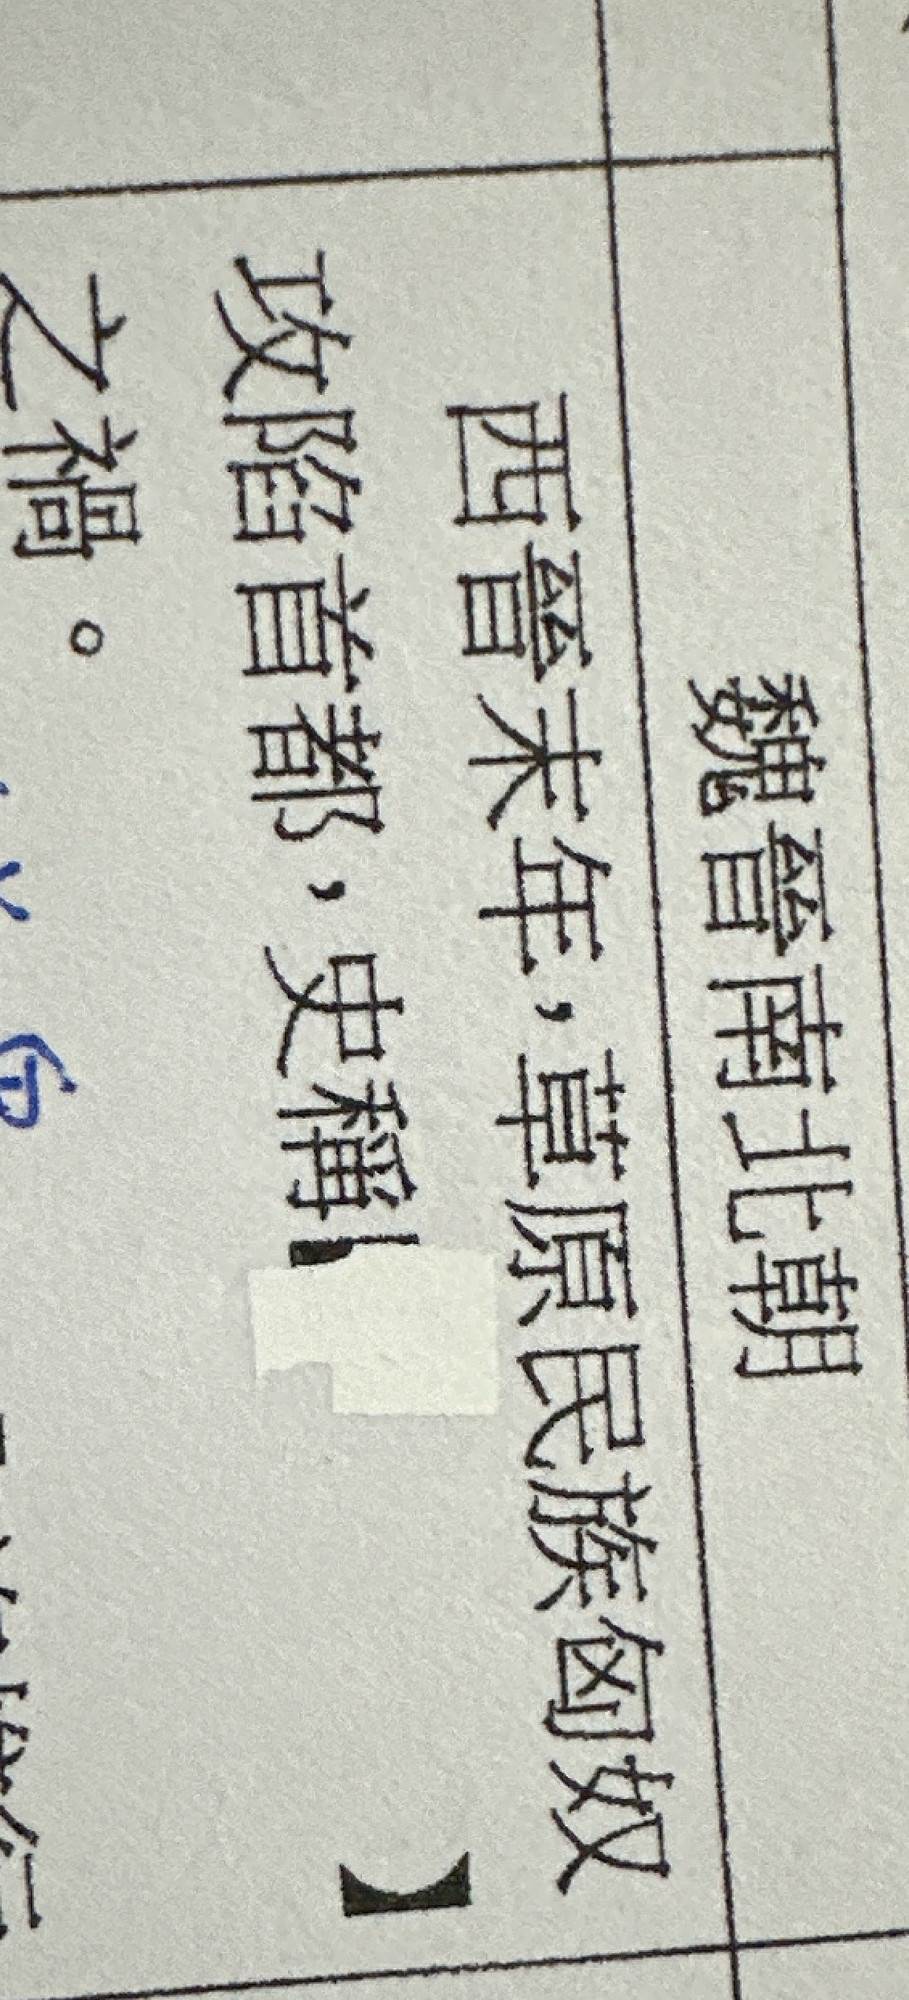 魏晉南北朝
西晉末年，草原民族匈奴
攻陷首都，史稱【 】
之禍。